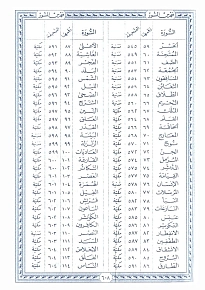 السورة
السورة
الحشر ٥٩ ٥٤٥ مدنية
الممتحنة ٦٠ ٥٤٩ مدنية
الصف ٦١ ٥٥١ مدنية
الجمعة ٦٢ ٥٥٣ مدنية
المنافقون ٦٣ ٥٥٤ مدنية
التغابن ٦٤ ٥٥٦ مدنية
الطلاق ٦٥ ٥٥٨ مدنية
التحريم ٦٦ ٥٦٠ مدنية
الملك ٦٧ ٥٦٢ مكية
القلم ٦٨ ٥٦٤ مكية
الحاقة ٦٩ ٥٦٦ مكية
المعارج ٧٠ ٥٦٨ مكية
نوح ٧١ ٥٧٠ مكية
الجن ٧٢ ٥٧٢ مكية
المزمل ٧٣ ٥٧٤ مكية
المدثر ٧٤ ٥٧٥ مكية
القيامة ٧٥ ٥٧٧ مكية
الإنسان ٧٦ ٥٧٨ مدنية
المرسلات ٧٧ ٥٨٠ مكية
النبأ ٧٨ ٥٨٢ مكية
النازعات ٧٩ ٥٨٣ مكية
عبس ٨٠ ٥٨٥ مكية
التكوير ٨١ ٥٨٦ مكية
الانفطار ٨٢ ٥٨٧ مكية
المطففين ٨٣ ٥٨٧ مكية
الانشقاق ٨٤ ٥٨٩ مكية
البروج ٨٥ ٥٩٠ مكية
الطارق ٨٦ ٥٩١ مكية
الأعلى ٨٧ ٥٩١ مكية
الغاشية ٨٨ ٥٩٢ مكية
الفجر ٨٩ ٥٩٣ مكية
البلد ٩٠ ٥٩٤ مكية
الشمس ٩١ ٥٩٥ مكية
الليل ٩٢ ٥٩٥ مكية
الضحى ٩٣ ٥٩٦ مكية
الشرح ٩٤ ٥٩٦ مكية
التين ٩٥ ٥٩٧ مكية
العلق ٩٦ ٥٩٧ مكية
القدر ٩٧ ٥٩٨ مكية
البينة ٩٨ ٥٩٨ مدنية
الزلزلة ٩٩ ٥٩٩ مدنية
العاديات ١٠٠ ٥٩٩ مكية
القارعة ١٠١ ٦٠٠ مكية
التكاثر ١٠٢ ٦٠٠ مكية
العصر ١٠٣ ٦٠١ مكية
الهمزة ١٠٤ ٦٠١ مكية
الفيل ١٠٥ ٦٠١ مكية
قريش ١٠٦ ٦٠٢ مكية
الماعون ١٠٧ ٦٠٢ مكية
الكوثر ١٠٨ ٦٠٢ مكية
الكافرون ١٠٩ ٦٠٣ مكية
النصر ١١٠ ٦٠٣ مدنية
المسد ١١١ ٦٠٣ مكية
الإخلاص ١١٢ ٦٠٤ مكية
الفلق ١١٣ ٦٠٤ مكية
الناس ١١٤ ٦٠٤ مكية